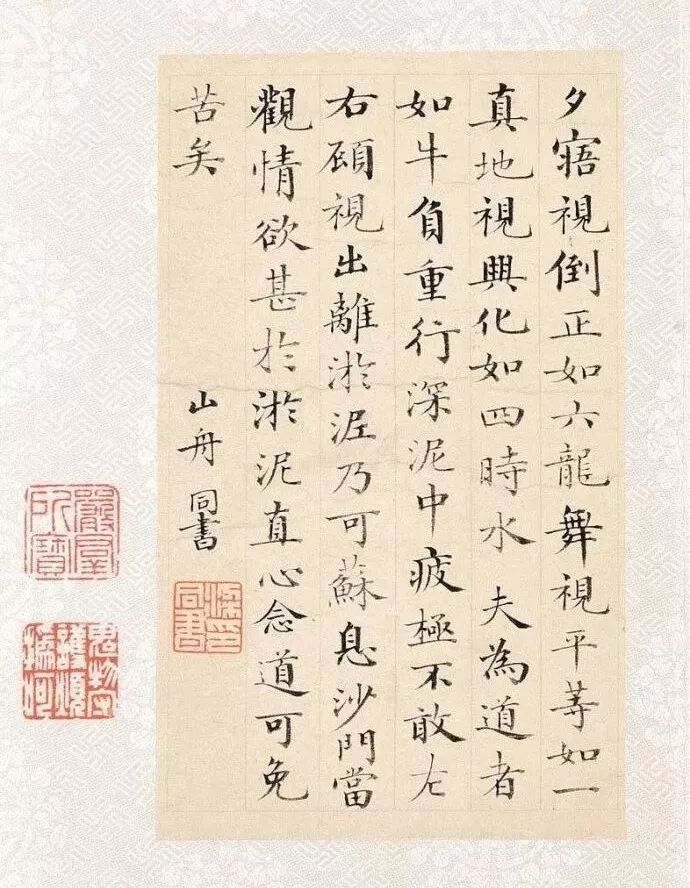 夕寤視倒正如六龍舞視平等如一
真地視興化如四時水 夫為道者
如牛負重行深泥中疲極不敢左
右顧視出離淤泥乃可蘇息沙門當
觀情欲甚於淤泥直心念道可免
苦矣
山舟同書
梁印同書
鬼物守護煩撝呵